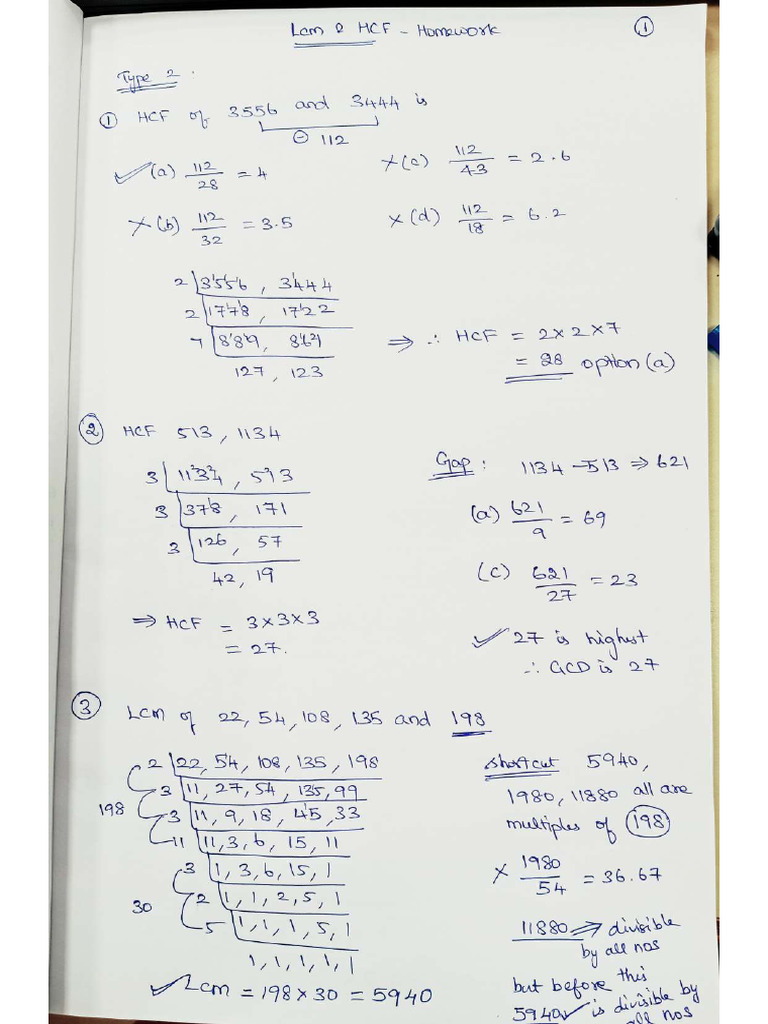 Lcm & HCF - Homework ①
Type 2 :
① HCF of 3556 and 3444 is
⊖ 112
✓(a) 112/28 = 4
×(c) 112/43 = 2.6
×(b) 112/32 = 3.5
×(d) 112/18 = 6.2
2 | 3556, 3444
2 | 1778, 1722
7 | 889, 861
127, 123
⇒ ∴ HCF = 2×2×7
= 28 option (a)
② HCF 513, 1134
3 | 1134, 513
3 | 378, 171
3 | 126, 57
42, 19
⇒ HCF = 3×3×3
= 27.
Gap : 1134 - 513 ⇒ 621
(a) 621/9 = 69
(c) 621/27 = 23
✓ 27 is highest
∴ GCD is 27
③ LCM of 22, 54, 108, 135 and 198
2 | 22, 54, 108, 135, 198
3 | 11, 27, 54, 135, 99
3 | 11, 9, 18, 45, 33
11 | 11, 3, 6, 15, 11
3 | 1, 3, 6, 15, 1
2 | 1, 1, 2, 5, 1
5 | 1, 1, 1, 5, 1
1, 1, 1, 1, 1
198
30
✓ Lcm = 198 × 30 = 5940
shortcut 5940,
1980, 11880 all are
multiples of 198
× 1980/54 = 36.67
11880 ⇒ divisible
by all nos
but before this
5940 ✓ is divisible by
all nos